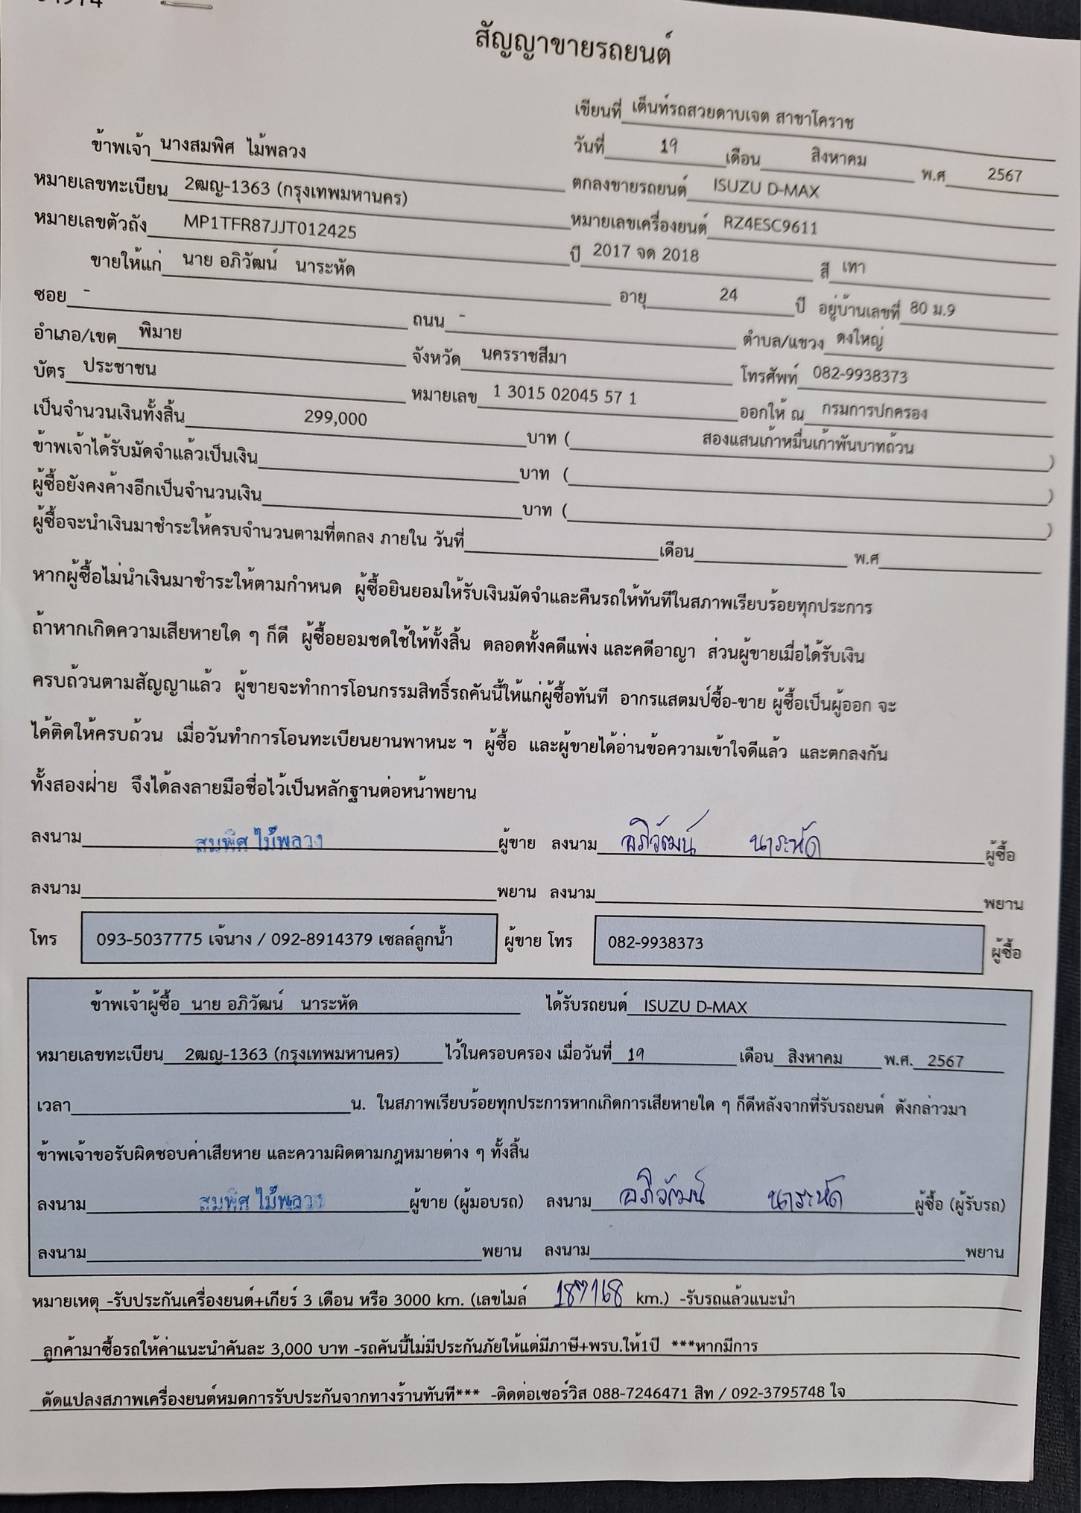 สัญญาขายรถยนต์
เขียนที่ เต็นท์รถสวยดาบเจต สาขาโคราช
วันที่ 19 เดือน สิงหาคม พ.ศ 2567
ข้าพเจ้า นางสมพิศ ไม้พลวง ตกลงขายรถยนต์ ISUZU D-MAX
หมายเลขทะเบียน 2ฒญ-1363 (กรุงเทพมหานคร) หมายเลขเครื่องยนต์ RZ4ESC9611
หมายเลขตัวถัง MP1TFR87JJT012425 ปี 2017 จด 2018 สี เทา
ขายให้แก่ นาย อภิวัฒน์ นาระหัด อายุ 24 ปี อยู่บ้านเลขที่ 80 ม.9
ซอย - ถนน - ตำบล/แขวง ดงใหญ่
อำเภอ/เขต พิมาย จังหวัด นครราชสีมา โทรศัพท์ 082-9938373
บัตร ประชาชน หมายเลข 1 3015 02045 57 1 ออกให้ ณ กรมการปกครอง
เป็นจำนวนเงินทั้งสิ้น 299,000 บาท ( สองแสนเก้าหมื่นเก้าพันบาทถ้วน )
ข้าพเจ้าได้รับมัดจำแล้วเป็นเงิน บาท ( )
ผู้ซื้อยังคงค้างอีกเป็นจำนวนเงิน บาท ( )
ผู้ซื้อจะนำเงินมาชำระให้ครบจำนวนตามที่ตกลง ภายใน วันที่ เดือน พ.ศ
หากผู้ซื้อไม่นำเงินมาชำระให้ตามกำหนด ผู้ซื้อยินยอมให้รับเงินมัดจำและคืนรถให้ทันทีในสภาพเรียบร้อยทุกประการ
ถ้าหากเกิดความเสียหายใด ๆ ก็ดี ผู้ซื้อยอมชดใช้ให้ทั้งสิ้น ตลอดทั้งคดีแพ่ง และคดีอาญา ส่วนผู้ขายเมื่อได้รับเงิน
ครบถ้วนตามสัญญาแล้ว ผู้ขายจะทำการโอนกรรมสิทธิ์รถคันนี้ให้แก่ผู้ซื้อทันที อากรแสตมป์ซื้อ-ขาย ผู้ซื้อเป็นผู้ออก จะ
ได้ติดให้ครบถ้วน เมื่อวันทำการโอนทะเบียนยานพาหนะ ฯ ผู้ซื้อ และผู้ขายได้อ่านข้อความเข้าใจดีแล้ว และตกลงกัน
ทั้งสองฝ่าย จึงได้ลงลายมือชื่อไว้เป็นหลักฐานต่อหน้าพยาน
ลงนาม สมพิศ ไม้พลวง ผู้ขาย ลงนาม อภิวัฒน์ นาระหัด ผู้ซื้อ
ลงนาม พยาน ลงนาม พยาน
โทร 093-5037775 เจ้นาง / 092-8914379 เซลล์ลูกน้ำ ผู้ขาย โทร 082-9938373 ผู้ซื้อ
ข้าพเจ้าผู้ซื้อ นาย อภิวัฒน์ นาระหัด ได้รับรถยนต์ ISUZU D-MAX
หมายเลขทะเบียน 2ฒญ-1363 (กรุงเทพมหานคร) ไว้ในครอบครอง เมื่อวันที่ 19 เดือน สิงหาคม พ.ศ. 2567
เวลา น. ในสภาพเรียบร้อยทุกประการหากเกิดการเสียหายใด ๆ ก็ดีหลังจากที่รับรถยนต์ ดังกล่าวมา
ข้าพเจ้าขอรับผิดชอบค่าเสียหาย และความผิดตามกฎหมายต่าง ๆ ทั้งสิ้น
ลงนาม สมพิศ ไม้พลวง ผู้ขาย (ผู้มอบรถ) ลงนาม อภิวัฒน์ นาระหัด ผู้ซื้อ (ผู้รับรถ)
ลงนาม พยาน ลงนาม พยาน
หมายเหตุ -รับประกันเครื่องยนต์+เกียร์ 3 เดือน หรือ 3000 km. (เลขไมล์ 187168 km.) -รับรถแล้วแนะนำ
ลูกค้ามาซื้อรถให้ค่าแนะนำคันละ 3,000 บาท -รถคันนี้ไม่มีประกันภัยให้แต่มีภาษี+พรบ.ให้1ปี ***หากมีการ
ดัดแปลงสภาพเครื่องยนต์หมดการรับประกันจากทางร้านทันที*** -ติดต่อเซอร์วิส 088-7246471 สิท / 092-3795748 ใจ